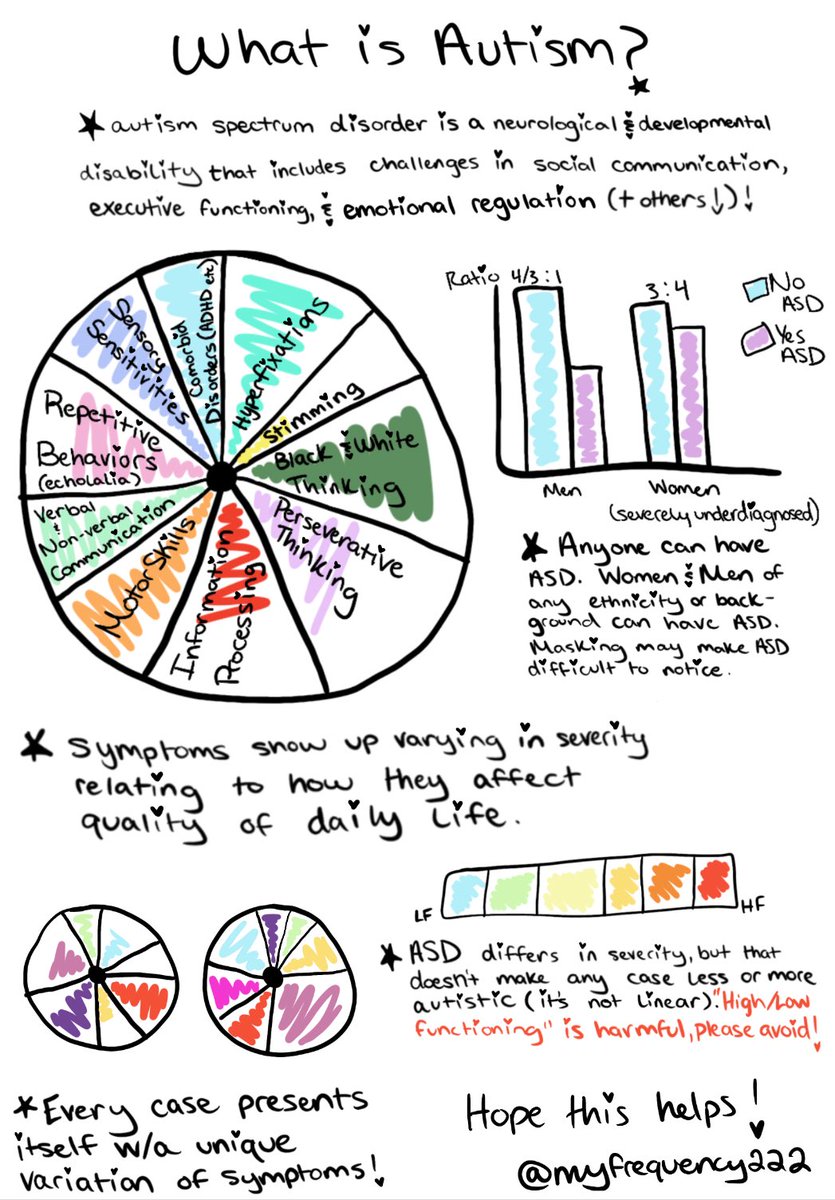 What is Autism?
★ autism spectrum disorder is a neurological & developmental
disability that includes challenges in social communication,
executive functioning, & emotional regulation (+ others↓)!
Sensory
Sensitivities
Comorbid
Disorders (ADHD etc)
Hyperfixations
Stimming
Black & White
Thinking
Perseverative
Thinking
Information
Processing
Motor Skills
Verbal
&
Non-verbal
Communication
Repetitive
Behaviors
(echolalia)
Ratio 4/3:1
3:4
No
ASD
Yes
ASD
Men
Women
(severely underdiagnosed)
★ Anyone can have
ASD. Women & Men of
any ethnicity or back-
ground can have ASD.
Masking may make ASD
difficult to notice.
★ Symptoms show up varying in severity
relating to how they affect
quality of daily life.
LF
HF
★ ASD differs in severity, but that
doesn't make any case less or more
autistic (it's not linear). "High/Low
functioning" is harmful, please avoid!
★ Every case presents
itself w/a unique
variation of symptoms!
Hope this helps!
@myfrequency222